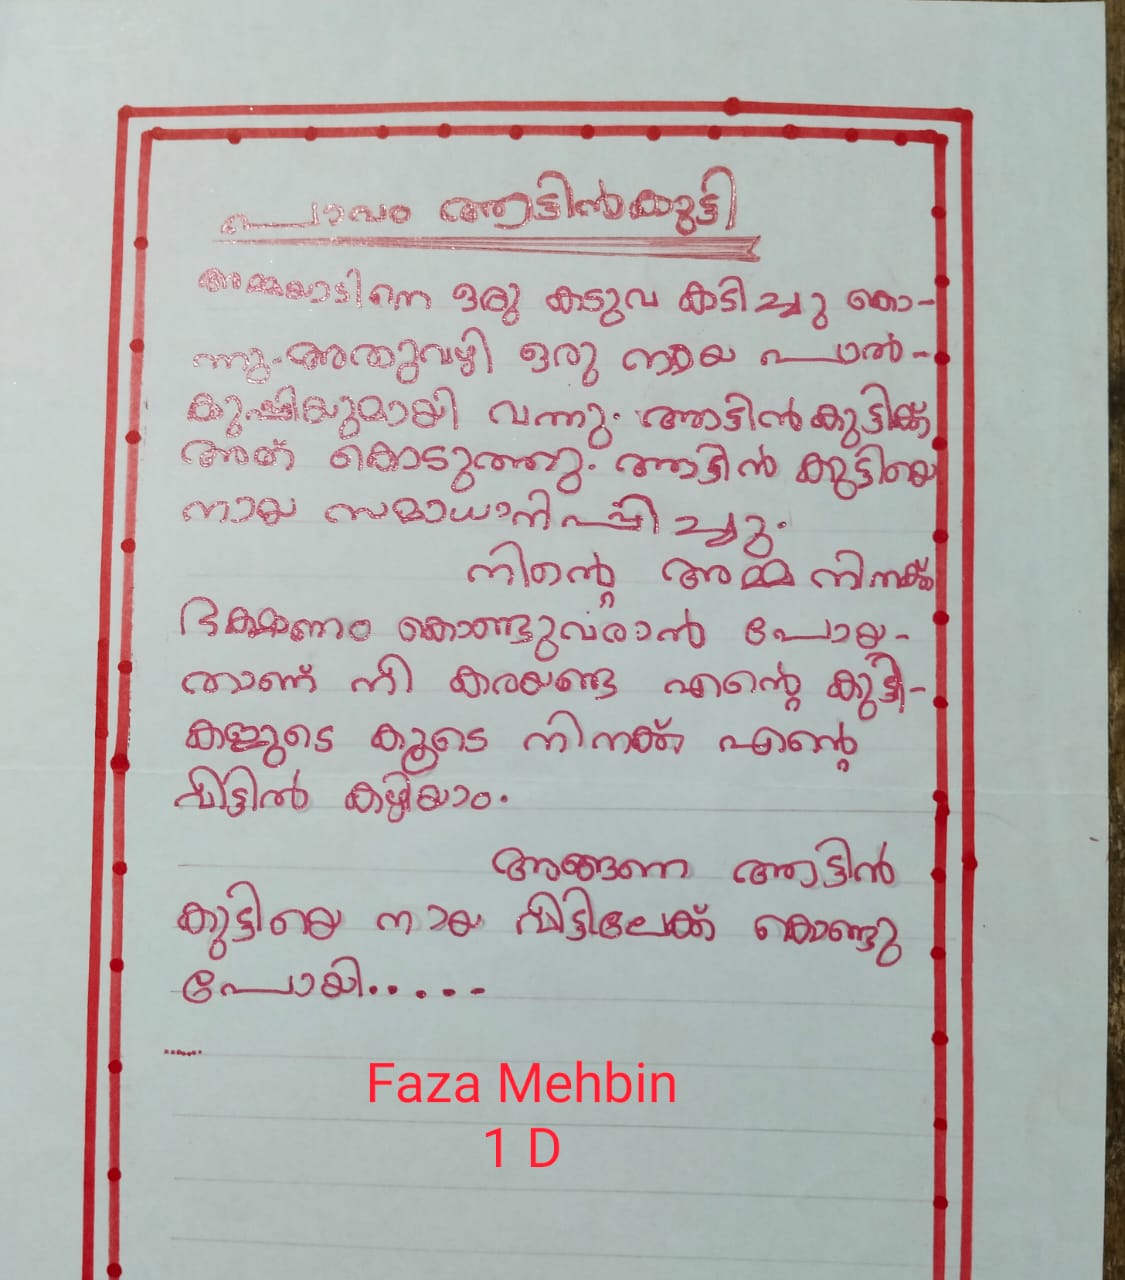 പാവം ആട്ടിൻകുട്ടി
അമ്മയാടിനെ ഒരു കടുവ കടിച്ചു കൊ-
ന്നു. അതുവഴി ഒരു നായ പാൽ-
കുപ്പിയുമായി വന്നു. ആട്ടിൻകുട്ടിക്ക്
അത് കൊടുത്തു. ആട്ടിൻ കുട്ടിയെ
നായ സമാധാനിപ്പിച്ചു.
നിന്റെ അമ്മ നിനക്ക്
ഭക്ഷണം കൊണ്ടുവരാൻ പോയ-
താണ് നീ കരയണ്ട എന്റെ കുട്ടി-
കളുടെ കൂടെ നിനക്ക് എന്റെ
വീട്ടിൽ കഴിയാം.
അങ്ങനെ ആട്ടിൻ
കുട്ടിയെ നായ വീട്ടിലേക്ക് കൊണ്ടു
പോയി.....
......
Faza Mehbin
1 D